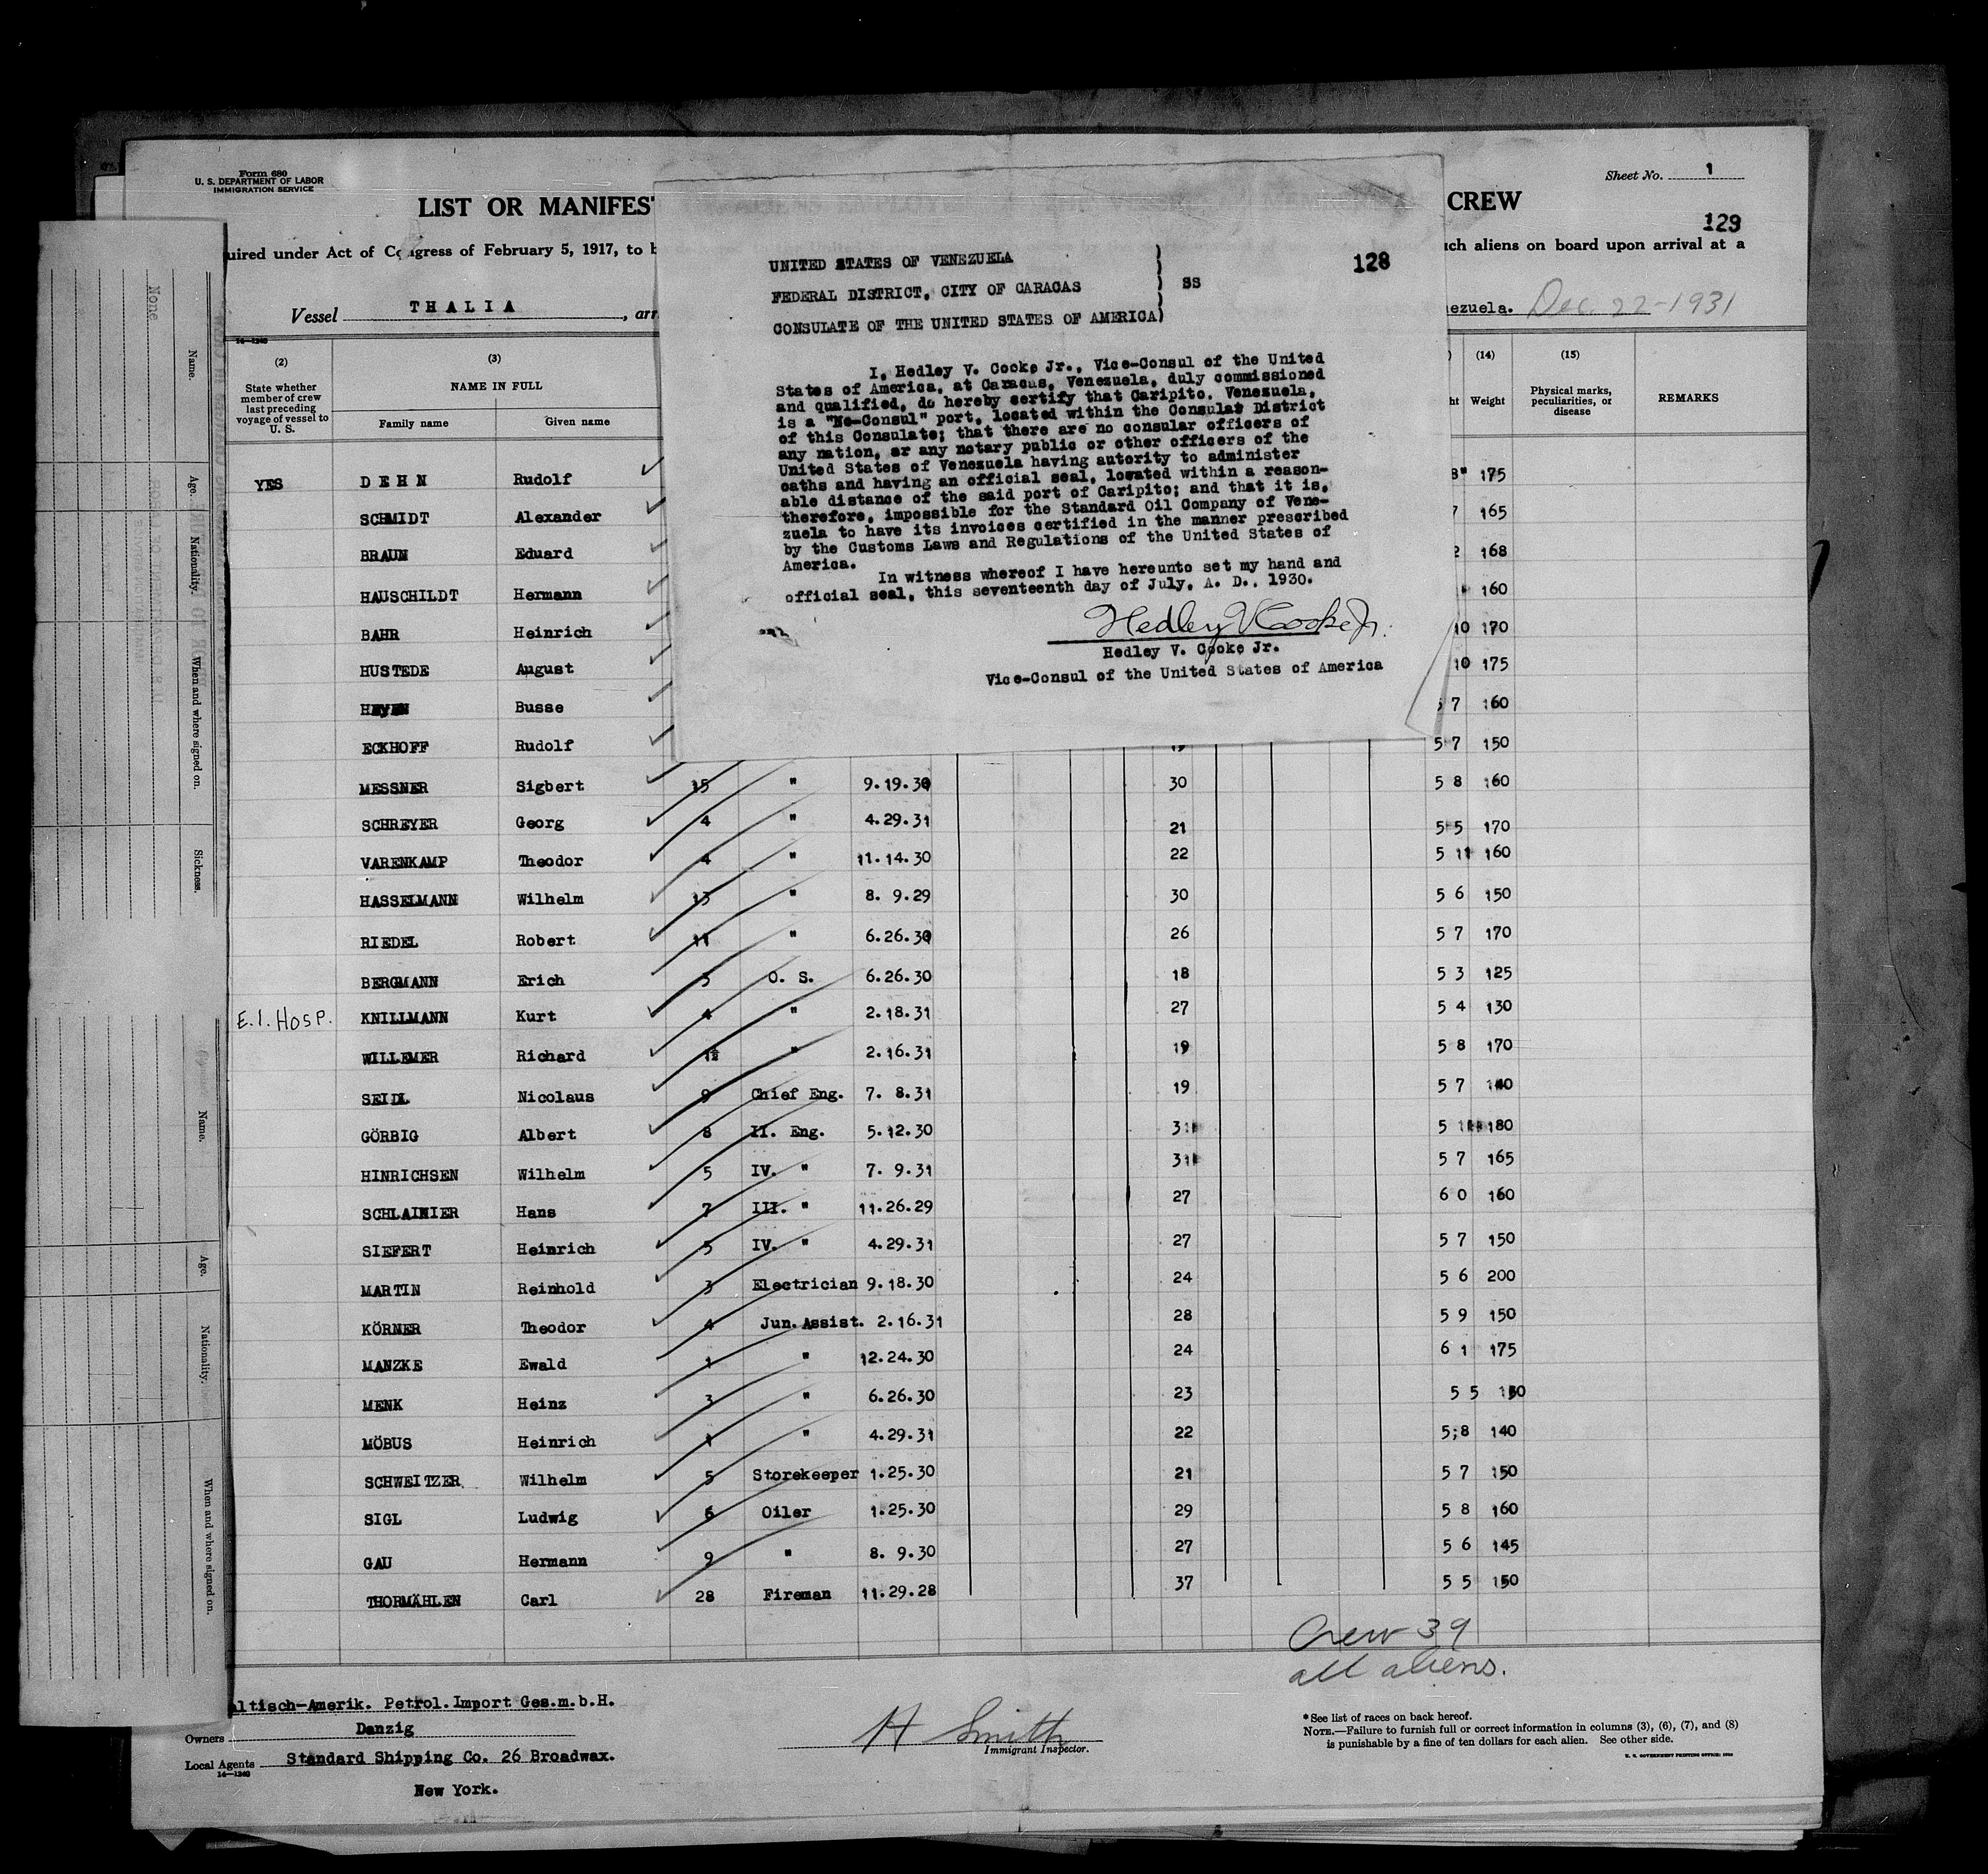 Form 680
U. S. DEPARTMENT OF LABOR
IMMIGRATION SERVICE
Sheet No. 1
LIST OR MANIFES
CREW
129
uired under Act of Congress of February 5, 1917, to b
uch aliens on board upon arrival at a
Vessel THALIA, arr
ezuela. Dec. 22-1931
128
UNITED STATES OF VENEZUELA
FEDERAL DISTRICT, CITY OF CARACAS
SS
CONSULATE OF THE UNITED STATES OF AMERICA
I, Hedley V. Cooke Jr., Vice-Consul of the United
States of America, at Caracas, Venezuela, duly commissioned
and qualified, do hereby certify that Caripito, Venezuela,
is a "No-Consul" port, located within the Consular District
of this Consulate; that there are no consular officers of
any nation, or any notary public or other officers of the
United States of Venezuela having autority to administer
oaths and having an official seal, located within a reason-
able distance of the said port of Caripito; and that it is,
therefore, impossible for the Standard Oil Company of Vene-
zuela to have its invoices certified in the manner prescribed
by the Customs Laws and Regulations of the United States of
America.
In witness whereof I have hereunto set my hand and
official seal, this seventeenth day of July, A. D., 1930.
Hedley V Cooke Jr.
Hedley V. Cooke Jr.
Vice-Consul of the United States of America
14-1240
(2) (3) (14) (15)
State whether member of crew last preceding voyage of vessel to U. S.
NAME IN FULL
Family name Given name
ht Weight
Physical marks, peculiarities, or disease
REMARKS
YES DEHN Rudolf 8" 175
SCHMIDT Alexander 7 165
BRAUN Eduard 2 168
HAUSCHILDT Hermann 160
BAHR Heinrich 10 170
HUSTEDE August 10 175
HEYEN Busse 5 7 160
ECKHOFF Rudolf 19 5 7 150
MESSNER Sigbert 15 " 9.19.30 30 5 8 160
SCHREYER Georg 4 " 4.29.31 21 5 5 170
VARENKAMP Theodor 4 " 11.14.30 22 5 11 160
HASSELMANN Wilhelm 13 " 8. 9.29 30 5 6 150
RIEDEL Robert 11 " 6.26.30 26 5 7 170
BERGMANN Erich 3 O. S. 6.26.30 18 5 3 125
E.I. HOSP. KNILLMANN Kurt 4 " 2.18.31 27 5 4 130
WILLEMER Richard 1½ " 2.16.31 19 5 8 170
SEIDL Nicolaus 9 Chief Eng. 7. 8.31 19 5 7 140
GÖRBIG Albert 8 II. Eng. 5.12.30 31 5 11 180
HINRICHSEN Wilhelm 5 IV. " 7. 9.31 31 5 7 165
SCHLAINIER Hans 7 III. " 11.26.29 27 6 0 160
SIEFERT Heinrich 5 IV. " 4.29.31 27 5 7 150
MARTIN Reinhold 3 Electrician 9.18.30 24 5 6 200
KÖRNER Theodor 4 Jun. Assist. 2.16.31 28 5 9 150
MANZKE Ewald 1 " 12.24.30 24 6 1 175
MENK Heinz 3 " 6.26.30 23 5 5 150
MÖBUS Heinrich 1 " 4.29.31 22 5;8 140
SCHWEITZER Wilhelm 5 Storekeeper 1.25.30 21 5 7 150
SIGL Ludwig 6 Oiler 1.25.30 29 5 8 160
GAU Hermann 9 " 8. 9.30 27 5 6 145
THORMÄHLEN Carl 28 Fireman 11.29.28 37 5 5 150
Crew 39
all aliens.
altisch-Amerik. Petrol.Import Ges.m.b.H.
Danzig
Owners
Local Agents Standard Shipping Co. 26 Broadwax.
14-1240
New York.
H Smith
Immigrant Inspector.
*See list of races on back hereof.
NOTE.—Failure to furnish full or correct information in columns (3), (6), (7), and (8)
is punishable by a fine of ten dollars for each alien. See other side.
U. S. GOVERNMENT PRINTING OFFICE: 1930
None
Name.
Age.
Nationality.
When and where signed on.
Sickness.
Name.
Age.
Nationality.
When and where signed on.